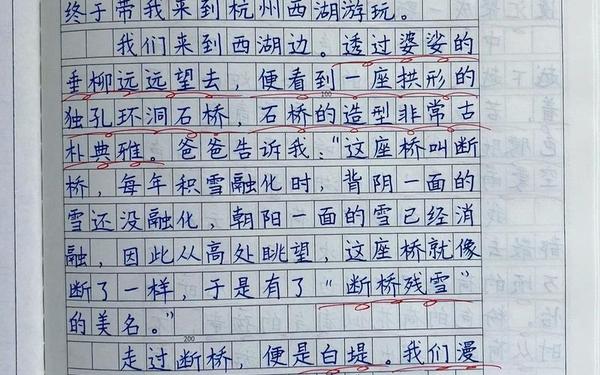 终于带我来到杭州西湖游玩。
我们来到西湖边。透过婆娑的
垂柳远远望去，便看到一座拱形的
100
独孔环洞石桥，石桥的造型非常古
朴典雅。爸爸告诉我：“这座桥叫断
桥，每年积雪融化时，背阴一面的
雪还没融化，朝阳一面的雪已经消
融，因此从高处眺望，这座桥就像
断了一样，于是有了“断桥残雪”
的美名。”
200
走过断桥，便是白堤。我们漫